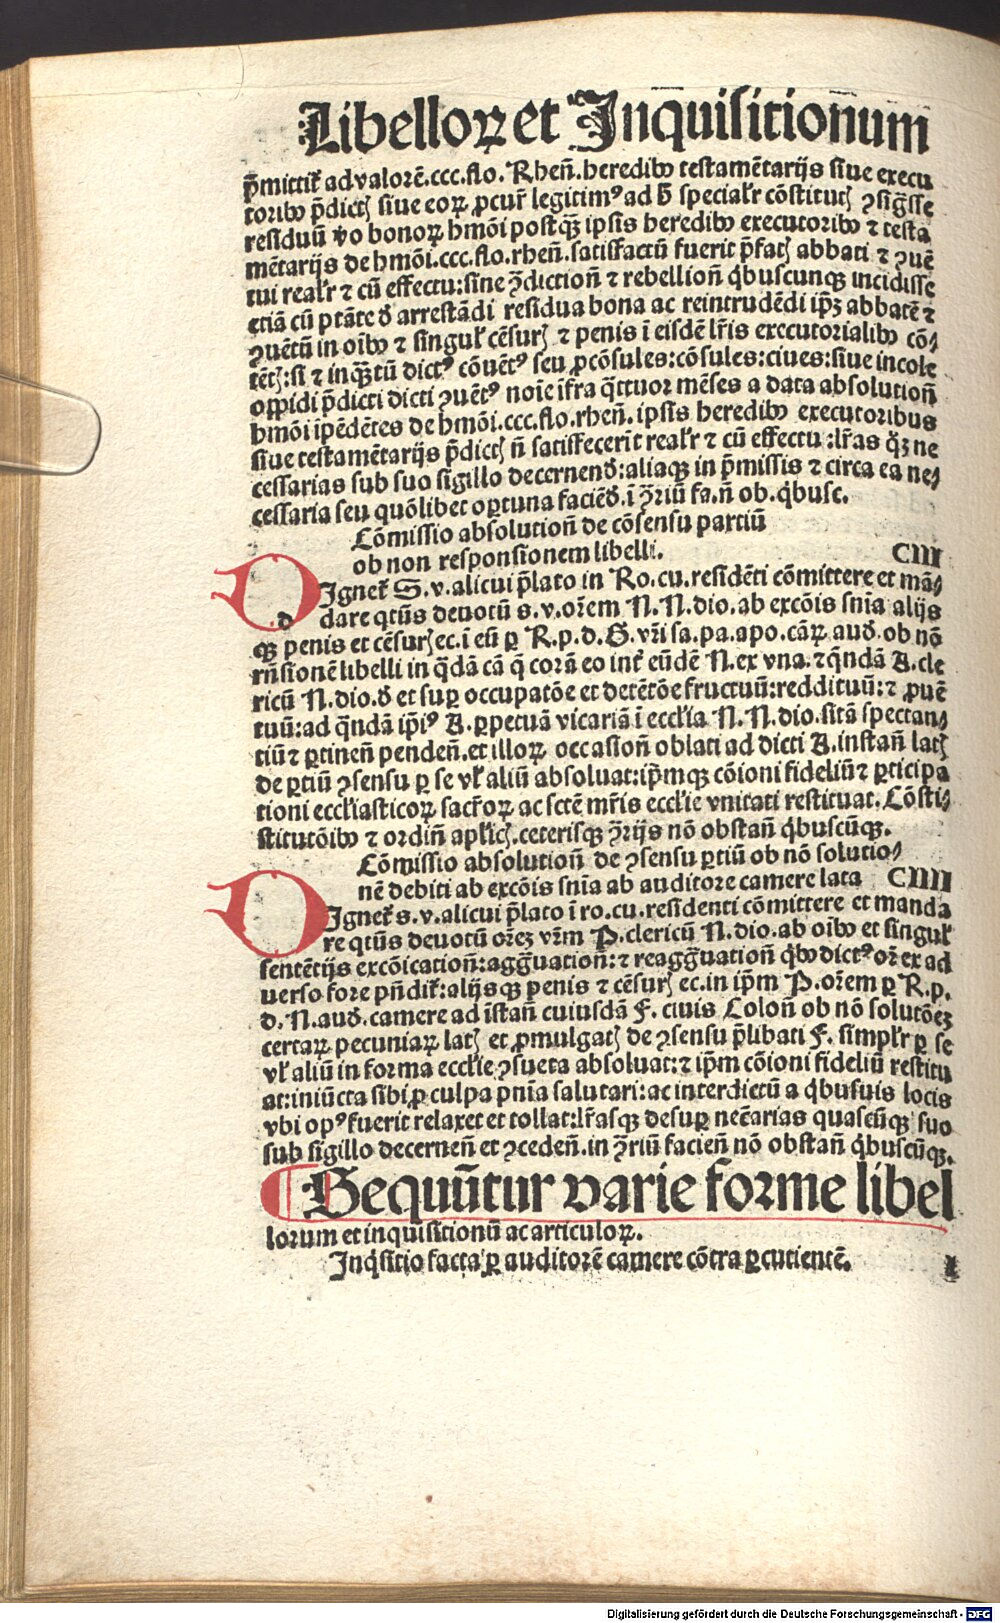 Libelloꝝ et Inquisitionum
p̄mittit᷑ ad valorē.ccc.flo.Rhen̄.heredibꝰ testamētarijs siue execu
toribꝰ p̄dictꝭ siue eoꝝ ꝓcur̄ legitimꝰ ad h̄ specialr̄ cōstitutꝭ ꝯsig̅sse
residuū v̊o bonoꝝ hmōi postqꝫ ipsis heredibꝰ executoribꝰ ⁊ testa
mētarijs de hmōi.ccc.flo.rhen̄.satisfactū fuerit p̄fatꝭ abbati ⁊ ꝯuē
tui realr̄ ⁊ cū effectu:sine ꝯ̄diction̄ ⁊ rebellion̄ qͥbuscunqꝫ incidisse
etiā cū ptāte đ arrestādi residua bona ac reintrudēdi ip̄ꝫ abbatē ⁊
ꝯuētū in oībꝰ ⁊ singul᷑ cēsurꝭ ⁊ penis ī eisdē lr̄is executorialibꝰ cō⸗
tētꝭ:si ⁊ inqꝫtū dictꝰ cōuētꝰ seu ꝓcōsules:cōsules:ciues:siue incole
oppidi p̄dicti dicti ꝯuētꝰ noīe īfra qͣttuor mēses a data absolution̄
hmōi ipēdētes de hmōi.ccc.flo.rhen̄.ipsis heredibꝰ executoribus
siue testamētarijs p̄dictꝭ n̄ satisfecerit realr̄ ⁊ cū effectu:lr̄as qͣꝫ ne
cessarias sub suo sigillo decernenđ:aliaqꝫ in p̄missis ⁊ circa ea ne⸗
cessaria seu quōlibet oꝑtuna faciēđ.ī ꝯ̄riū fa.n̄ ob.qͥbusc.
Cōmissio absolution̄ de cōsensu partiū
ob non responsionem libelli. CIII
DIgnet᷑ S.v.alicui p̄lato in Ro.cu.residēti cōmittere et mā⸗
dare qͣtūs deuotū s.v.or̄em N.N.dio.ab excōis sn̄ia alijs
qꝫ penis et cēsurꝭ ec.ī eū ꝑ R.p.d.G.vr̄i sa.pa.apo.cāꝝ auđ.ob nō
rn̄sionē libelli in qͣdā cā q̄ corā eo int᷑ eūdē N.ex vna.⁊ qͣndā A.cle
ricū N.dio.đ et suꝑ occupatōe et detētōe fructuū:reddituū:⁊ ꝓuē
tuū:ad qͣndā ip̄iꝰ A.ꝑpetuā vicariā ī eccl̄ia N.N.dio.sitā spectan⸗
tiū ⁊ ꝑtinen̄ penden̄.et illoꝝ occasion̄ oblati ad dicti A.instan̄ latꝭ
de ꝑtiū ꝯsensu ꝑ se vl᷑ aliū absoluat:ip̄mqꝫ cōioni fideliū ⁊ ꝑticipa
tioni eccl̄iasticoꝝ sacr̄oꝝ ac scte mr̄is eccl̄ie vnitati restituat.Cōsti⸗
stitutōibꝰ ⁊ ordin̄ apl̄icꝭ.ceterisqꝫ ꝯ̄rijs nō obstan̄ qͥbuscūqꝫ.
Cōmissio absolution̄ de ꝯsensu ꝑtiū ob nō solutio⸗
nē debiti ab excōis sn̄ia ab auditore camere lata CIIII
DIgnet᷑ s.v.alicui p̄lato ī ro.cu.residenti cōmittere et manda
re qͣtūs deuotū or̄eꝫ vr̄m P.clericū N.dio.ab oībꝰ et singul᷑
sentētijs excōication̄:agg̅uation̄:⁊ reagg̅uation̄ qͥbꝰ dictꝰ or̄ ex ad
uerso fore pn̄dit᷑:alijsqꝫ penis ⁊ cēsurꝭ ec.in ip̄m P.or̄em ꝑ R.p.
d.N.auđ.camere ad īstan̄ cuiusdā F.ciuis Colon̄ ob nō solutōeꝫ
certaꝝ pecuniaꝝ latꝭ et ꝓmulgatꝭ de ꝯsensu p̄libati F.simpl᷑r ꝑ se
vl᷑ aliū in forma eccl̄ie ꝯsueta absoluat:⁊ ip̄m cōioni fideliū restitu
at:iniūcta sibi ꝓ culpa pn̄ia salutari:ac interdictū a qͥbusuis locis
vbi opꝰ fuerit relaxet et tollat:lr̄asqꝫ desuꝑ nec̄arias quascūqꝫ suo
sub sigillo decernen̄ et ꝯceden̄.in ꝯ̄riū facien̄ nō obstan̄ qͥbuscūqꝫ.
Sequūtur varie forme libel
lorum et inquisitionū ac articuloꝝ.
Inqͥsitio facta ꝑ auditorē camere cōtra ꝑcutientē. I
Digitalisierung gefördert durch die Deutsche Forschungsgemeinschaft - DFG